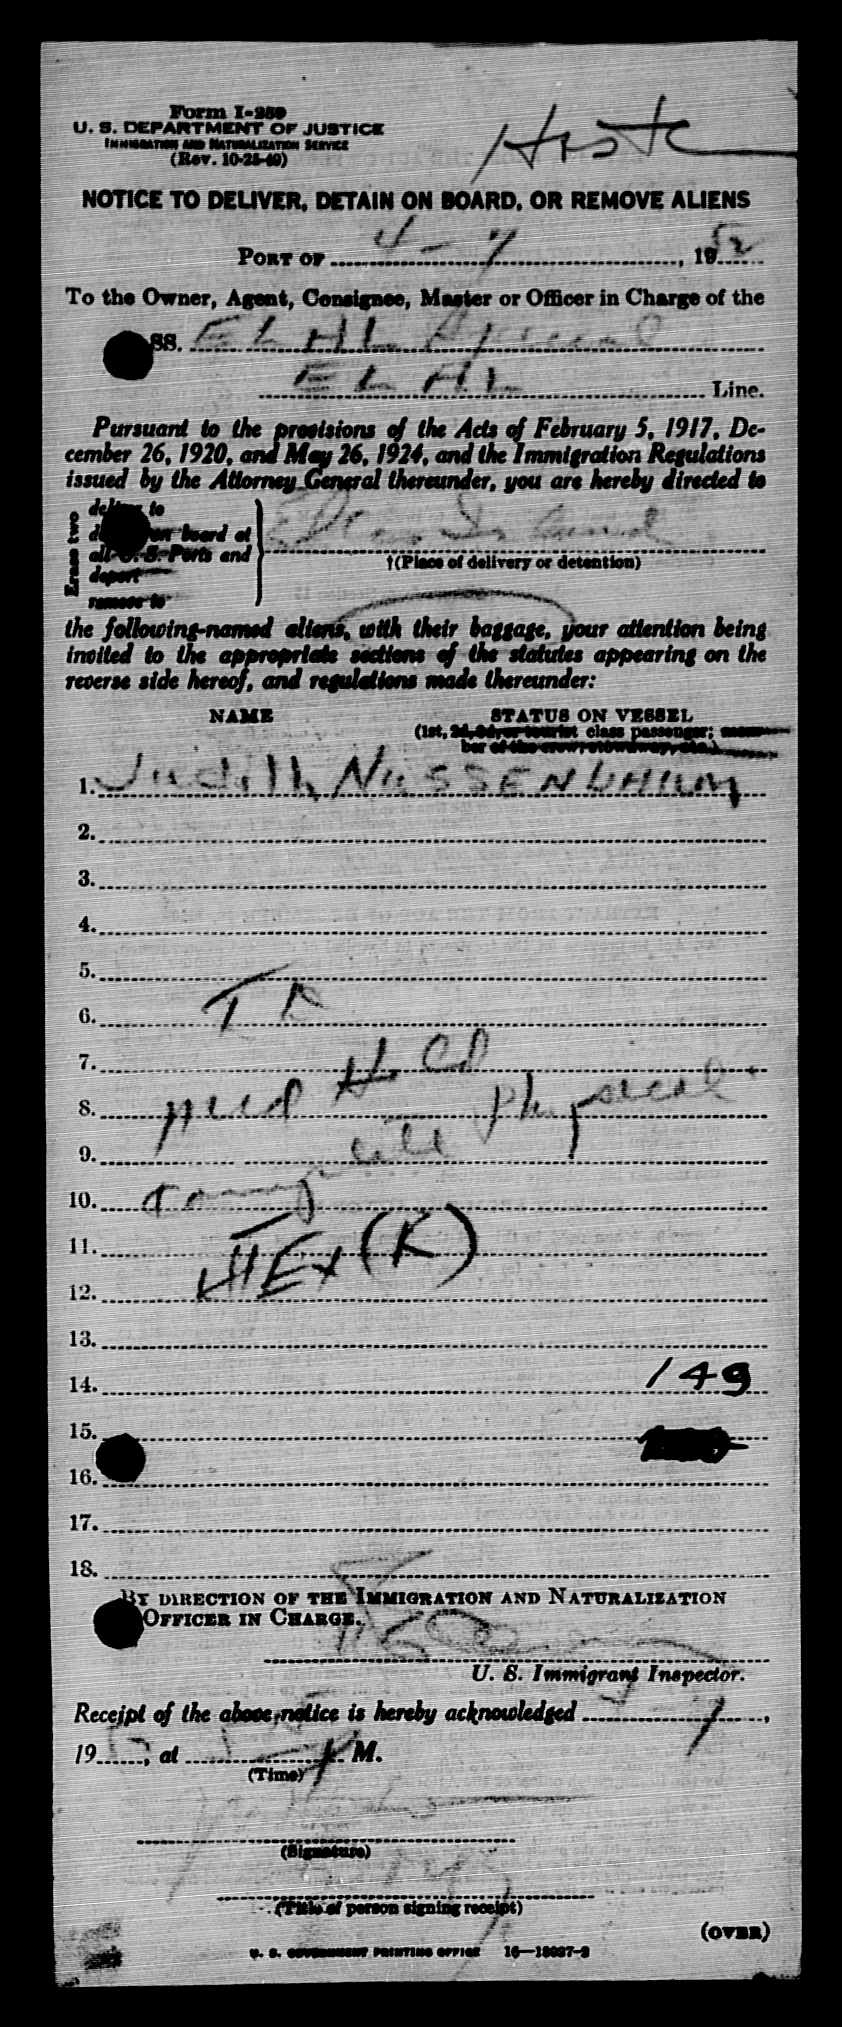 Form I-259
U. S. DEPARTMENT OF JUSTICE
IMMIGRATION AND NATURALIZATION SERVICE
(Rev. 10-25-49)
NOTICE TO DELIVER, DETAIN ON BOARD, OR REMOVE ALIENS
PORT OF 4-7, 1952
To the Owner, Agent, Consignee, Master or Officer in Charge of the
SS. EL AL
EL AL Line.
Pursuant to the provisions of the Acts of February 5, 1917, De-
cember 26, 1920, and May 26, 1924, and the Immigration Regulations
issued by the Attorney General thereunder, you are hereby directed to
Erase two
deliver to
on board at
all U. S. Ports and
deport
remove to
Ellis Island
†(Place of delivery or detention)
the following-named aliens, with their baggage, your attention being
invited to the appropriate sections of the statutes appearing on the
reverse side hereof, and regulations made thereunder:
NAME STATUS ON VESSEL
(1st, 2d, 3d, or tourist class passenger; mem-
ber of the crew, stowaway, etc.)
1. Judith NUSSENBAUM
2.
3.
4.
5.
6.
7.
8. physical
9.
10.
11. (K)
12.
13.
14. 149
15.
16.
17.
18.
BY DIRECTION OF THE IMMIGRATION AND NATURALIZATION
OFFICER IN CHARGE.
U. S. Immigrant Inspector.
Receipt of the above notice is hereby acknowledged
19 , at M.
(Time)
(Signature)
(Title of person signing receipt)
(OVER)
U. S. GOVERNMENT PRINTING OFFICE 16—18037-2